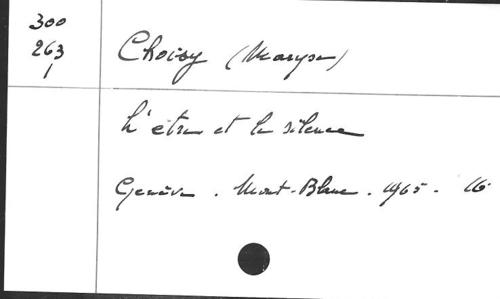 300
263
1
Choisy (Maryse)
L'être et le silence
Genève. Mont-Blanc. 1965. 16°